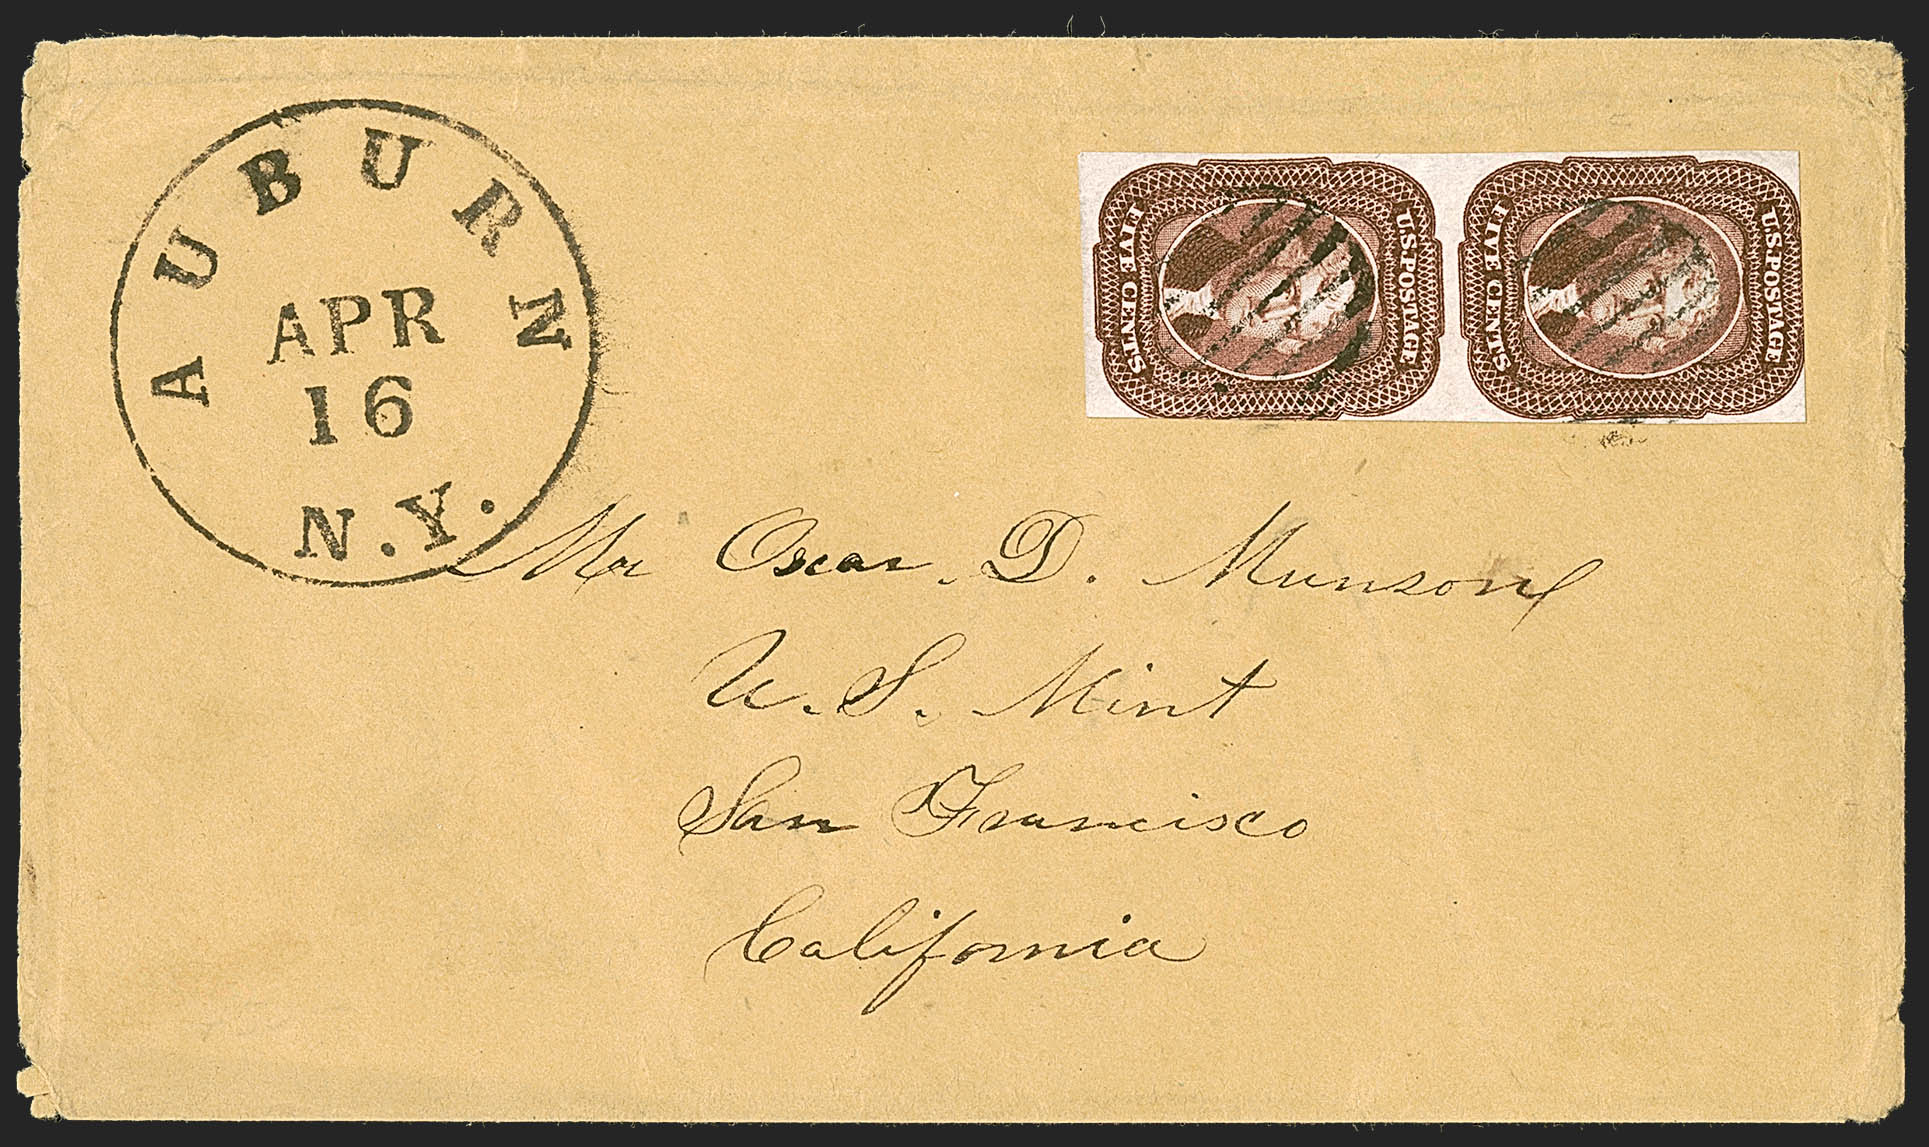 AUBURN
APR
16
N.Y.
U.S. POSTAGE
FIVE CENTS
U.S. POSTAGE
FIVE CENTS
Mr Oscar. D. Munson
U. S. Mint
San Francisco
California